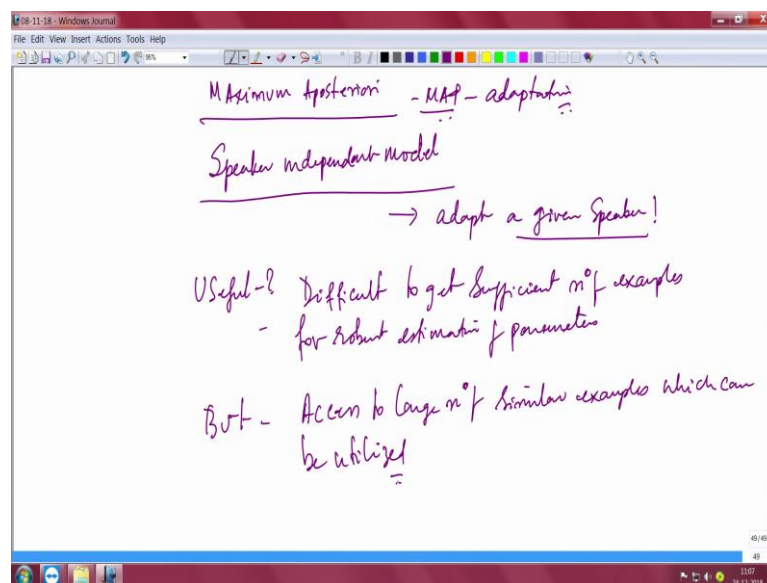 08-11-18 - Windows Journal
File Edit View Insert Actions Tools Help
96%
B I
MAximum Aposteriori - MAP - adaptation
Speaker independent model
→ adapt a given Speaker!
Useful-? Difficult to get Sufficient nº of examples
- for robust estimation of parameters
But - Access to large nº of Similar examples which can
be utilized
49/49
49
11:07